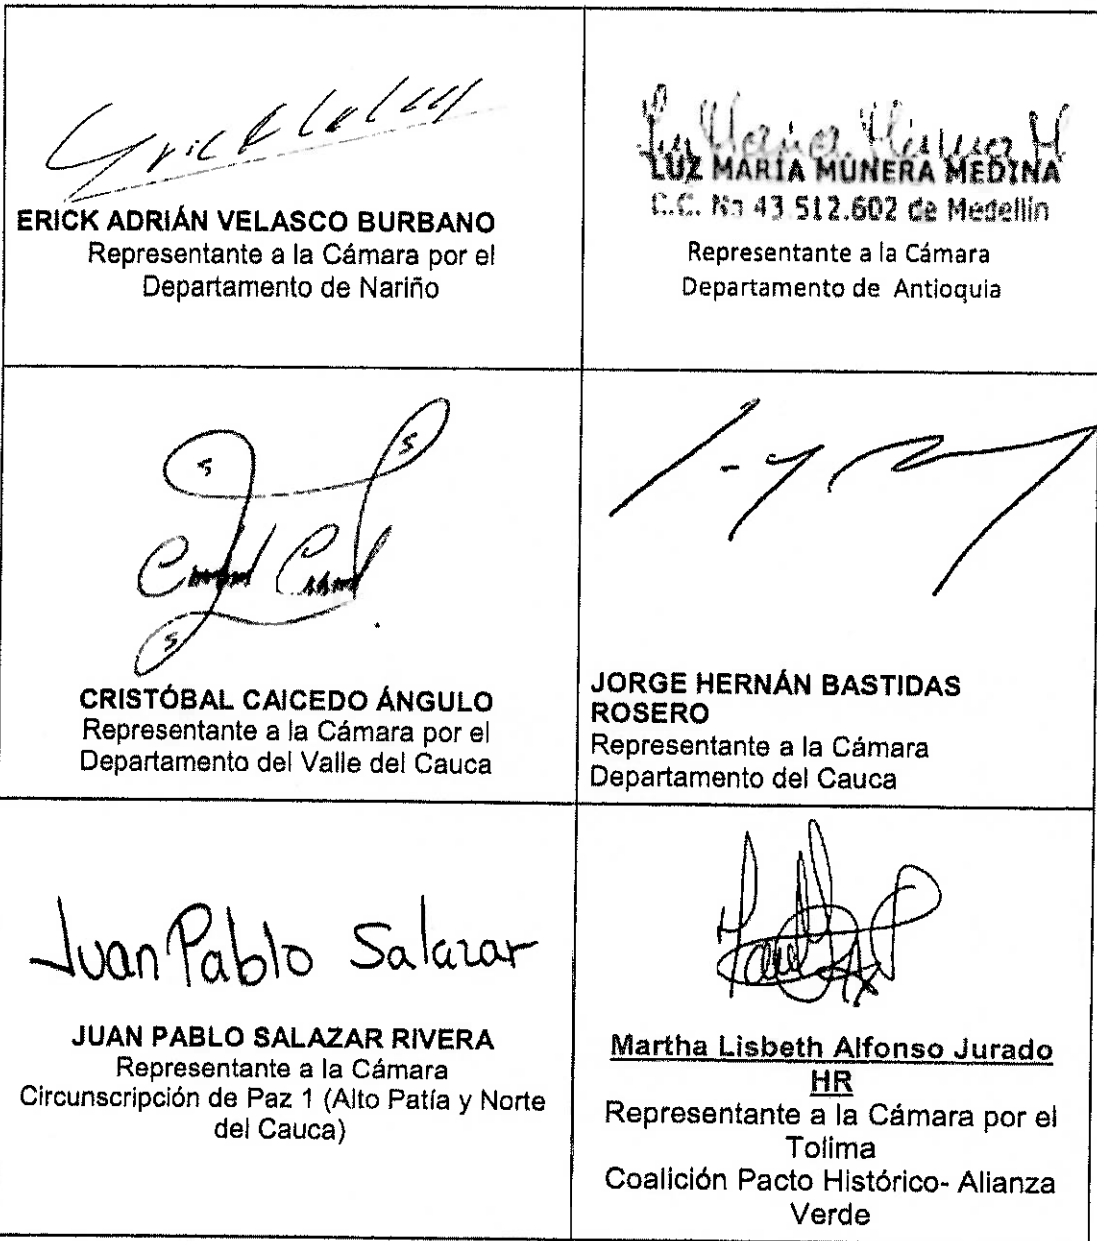 Erick Velasco
ERICK ADRIÁN VELASCO BURBANO
Representante a la Cámara por el
Departamento de Nariño
Luz María Múnera M
LUZ MARÍA MÚNERA MEDINA
C.C. No 43 512.602 de Medellín
Representante a la Cámara
Departamento de Antioquia
S
S
S
CRISTÓBAL CAICEDO ÁNGULO
Representante a la Cámara por el
Departamento del Valle del Cauca
JORGE HERNÁN BASTIDAS
ROSERO
Representante a la Cámara
Departamento del Cauca
Juan Pablo Salazar
JUAN PABLO SALAZAR RIVERA
Representante a la Cámara
Circunscripción de Paz 1 (Alto Patía y Norte
del Cauca)
Martha Lisbeth Alfonso Jurado
HR
Representante a la Cámara por el
Tolima
Coalición Pacto Histórico- Alianza
Verde